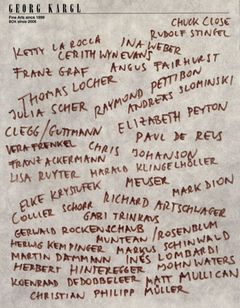 GEORG KARGL
Fine Arts since 1998
BOX since 2005
CHUCK CLOSE
RUDOLF STINGEL
KETTY LA ROCCA INA WEBER
CERITH WYN EVANS
FRANZ GRAF ANGUS FAIRHURST
THOMAS LOCHER
RAYMOND PETTIBON
JULIA SCHER ANDREAS SLOMINSKI
CLEGG/GUTTMANN ELIZABETH PEYTON
VERA FRENKEL PAUL DE REUS
CHRIS JOHANSON
FRANZ ACKERMANN
LISA RUYTER HARALD KLINGELHÖLLER
ELKE KRYSTUFEK MEUSER
MARK DION
COLLIER SCHORR RICHARD ARTSCHLAGER
GABI TRINKAUS
GERWALD ROCKENSCHAUB
MUNTEAN/ROSENBLUM
HERWIG KEMPINGER MARKUS SCHINWALD
MARTIN DAMMANN INES LOMBARDI
HERBERT HINTEREGGER JOHN WATERS
KOENRAAD DEDOBBELEER MATT MULLICAN
CHRISTIAN PHILIPP MÜLLER